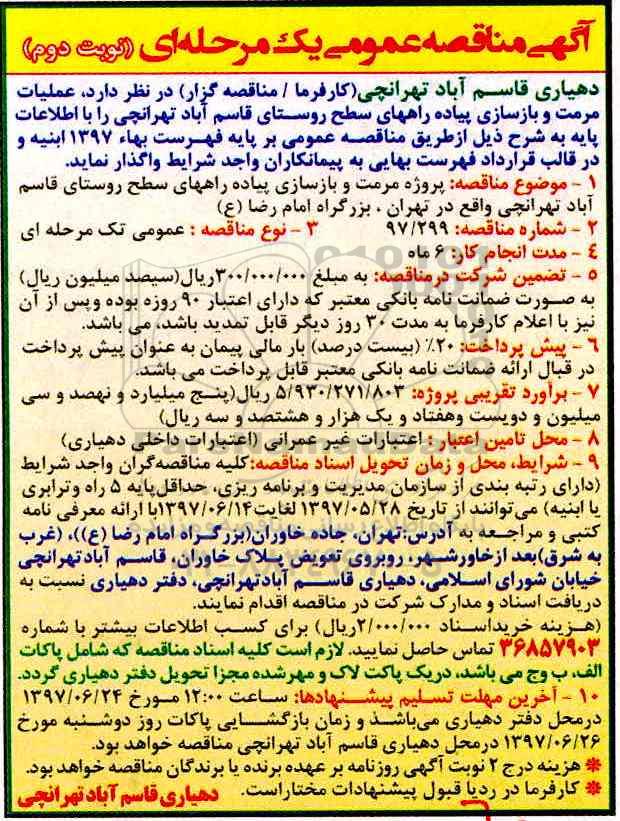 آگهی مناقصه عمومی یک مرحله‌ای (نوبت دوم)
دهیاری قاسم آباد تهرانچی(کارفرما / مناقصه گزار) در نظر دارد، عملیات
مرمت و بازسازی پیاده راههای سطح روستای قاسم آباد تهرانچی را با اطلاعات
پایه به شرح ذیل ازطریق مناقصه عمومی بر پایه فهرست بهاء ۱۳۹۷ ابنیه و
در قالب قرارداد فهرست بهایی به پیمانکاران واجد شرایط واگذار نماید.
۱ - موضوع مناقصه: پروژه مرمت و بازسازی پیاده راههای سطح روستای قاسم
آباد تهرانچی واقع در تهران ، بزرگراه امام رضا (ع)
۲ - شماره مناقصه: ۹۷/۲۹۹ ۳ - نوع مناقصه : عمومی تک مرحله ای
۴ - مدت انجام کار: ۶ ماه
۵ - تضمین شرکت درمناقصه: به مبلغ ۳۰۰/۰۰۰/۰۰۰ریال(سیصد میلیون ریال)
به صورت ضمانت نامه بانکی معتبر که دارای اعتبار ۹۰ روزه بوده وپس از آن
نیز با اعلام کارفرما به مدت ۳۰ روز دیگر قابل تمدید باشد، می باشد.
۶ - پیش پرداخت: ۲۰٪ (بیست درصد) بار مالی پیمان به عنوان پیش پرداخت
در قبال ارائه ضمانت نامه بانکی معتبر قابل پرداخت می باشد.
۷ - برآورد تقریبی پروژه: ۵/۹۳۰/۲۷۱/۸۰۳ ریال(پنج میلیارد و نهصد و سی
میلیون و دویست وهفتاد و یک هزار و هشتصد و سه ریال)
۸ - محل تامین اعتبار : اعتبارات غیر عمرانی (اعتبارات داخلی دهیاری)
۹ - شرایط، محل و زمان تحویل اسناد مناقصه:کلیه مناقصه‌گران واجد شرایط
(دارای رتبه بندی از سازمان مدیریت و برنامه ریزی، حداقل‌پایه ۵ راه وترابری
یا ابنیه) می‌توانند از تاریخ ۱۳۹۷/۰۵/۲۸ لغایت۱۳۹۷/۰۶/۱۴با ارائه معرفی نامه
کتبی و مراجعه به آدرس:تهران، جاده خاوران(بزرگراه امام رضا (ع))، (غرب
به شرق)بعد ازخاورشهر، روبروی تعویض پلاک خاوران، قاسم آبادتهرانچی
خیابان شورای اسلامی، دهیاری قاسم آبادتهرانچی، دفتر دهیاری نسبت به
دریافت اسناد و مدارک شرکت در مناقصه اقدام نمایند.
(هزینه خریداسناد ۲/۰۰۰/۰۰۰ریال) برای کسب اطلاعات بیشتر با شماره
۳۶۸۵۷۹۰۳ تماس حاصل نمایید. لازم است کلیه اسناد مناقصه که شامل پاکات
الف، ب وج می باشد، دریک پاکت لاک و مهرشده مجزا تحویل دفتر دهیاری گردد.
۱۰ - آخرین مهلت تسلیم پیشنهادها: ساعت ۱۲:۰۰ مورخ ۱۳۹۷/۰۶/۲۴
درمحل دفتر دهیاری می‌باشد و زمان بازگشایی پاکات روز دوشنبه مورخ
۱۳۹۷/۰۶/۲۶ درمحل دهیاری قاسم آباد تهرانچی مناقصه خواهد بود.
* هزینه درج ۲ نوبت آگهی روزنامه بر عهده برنده یا برندگان مناقصه خواهد بود.
* کارفرما در ردیا قبول پیشنهادات مختاراست. دهیاری قاسم آباد تهرانچی